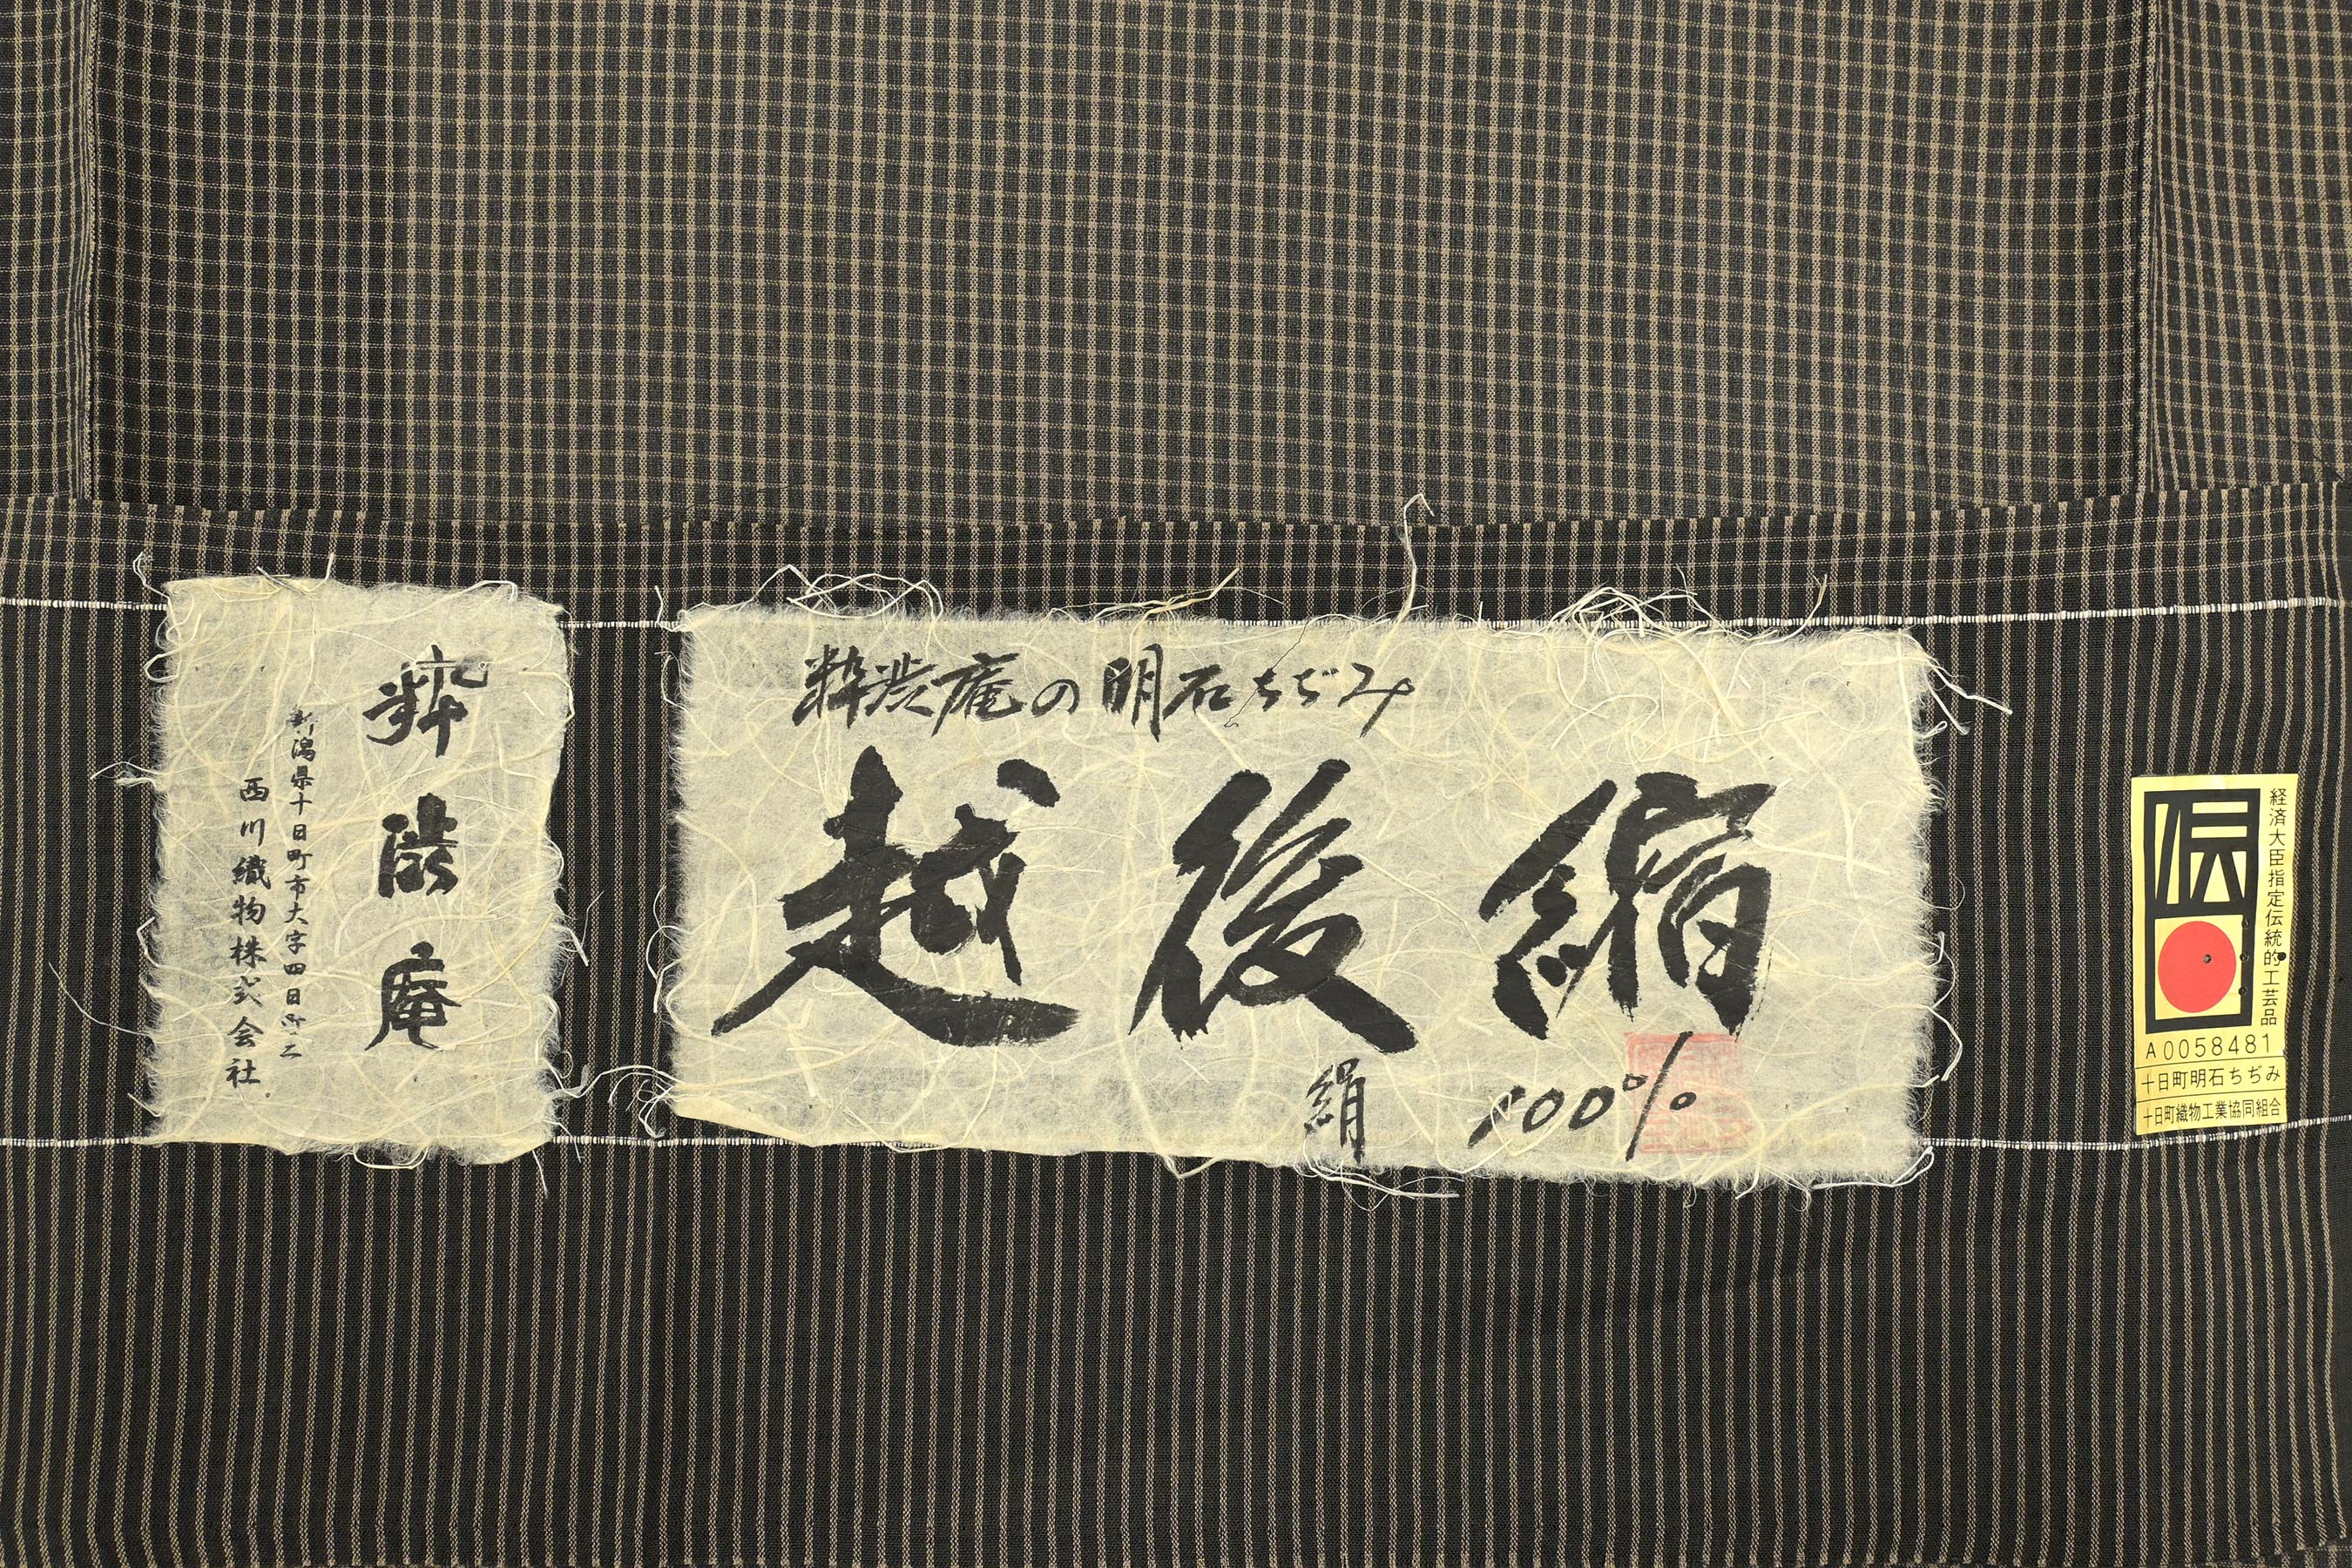 粋渋庵
新潟県十日町市大字四日町二
西川織物株式会社
粋渋庵の明石ちぢみ
越後縮
絹 100%
伝
経済大臣指定伝統的工芸品
A0058481
十日町明石ちぢみ
十日町織物工業協同組合